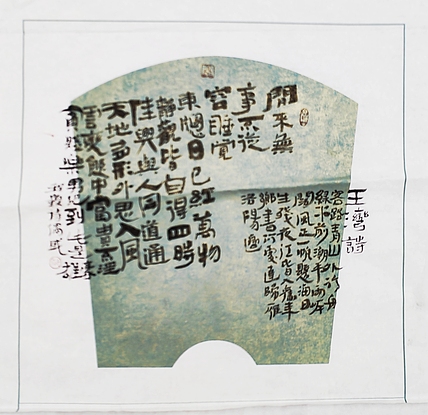 王灣詩
客路青山外行舟
綠水前潮平兩岸
闊風正一帆懸海日
生殘夜江春入舊年
鄉書何處達歸雁
洛陽邊
閒來無
事不從
容睡覺
東窗日已紅萬物
靜觀皆自得四時
佳興與人同道通
天地有形外思入風
雲變態中富貴不淫
貧賤樂男兒到此是豪